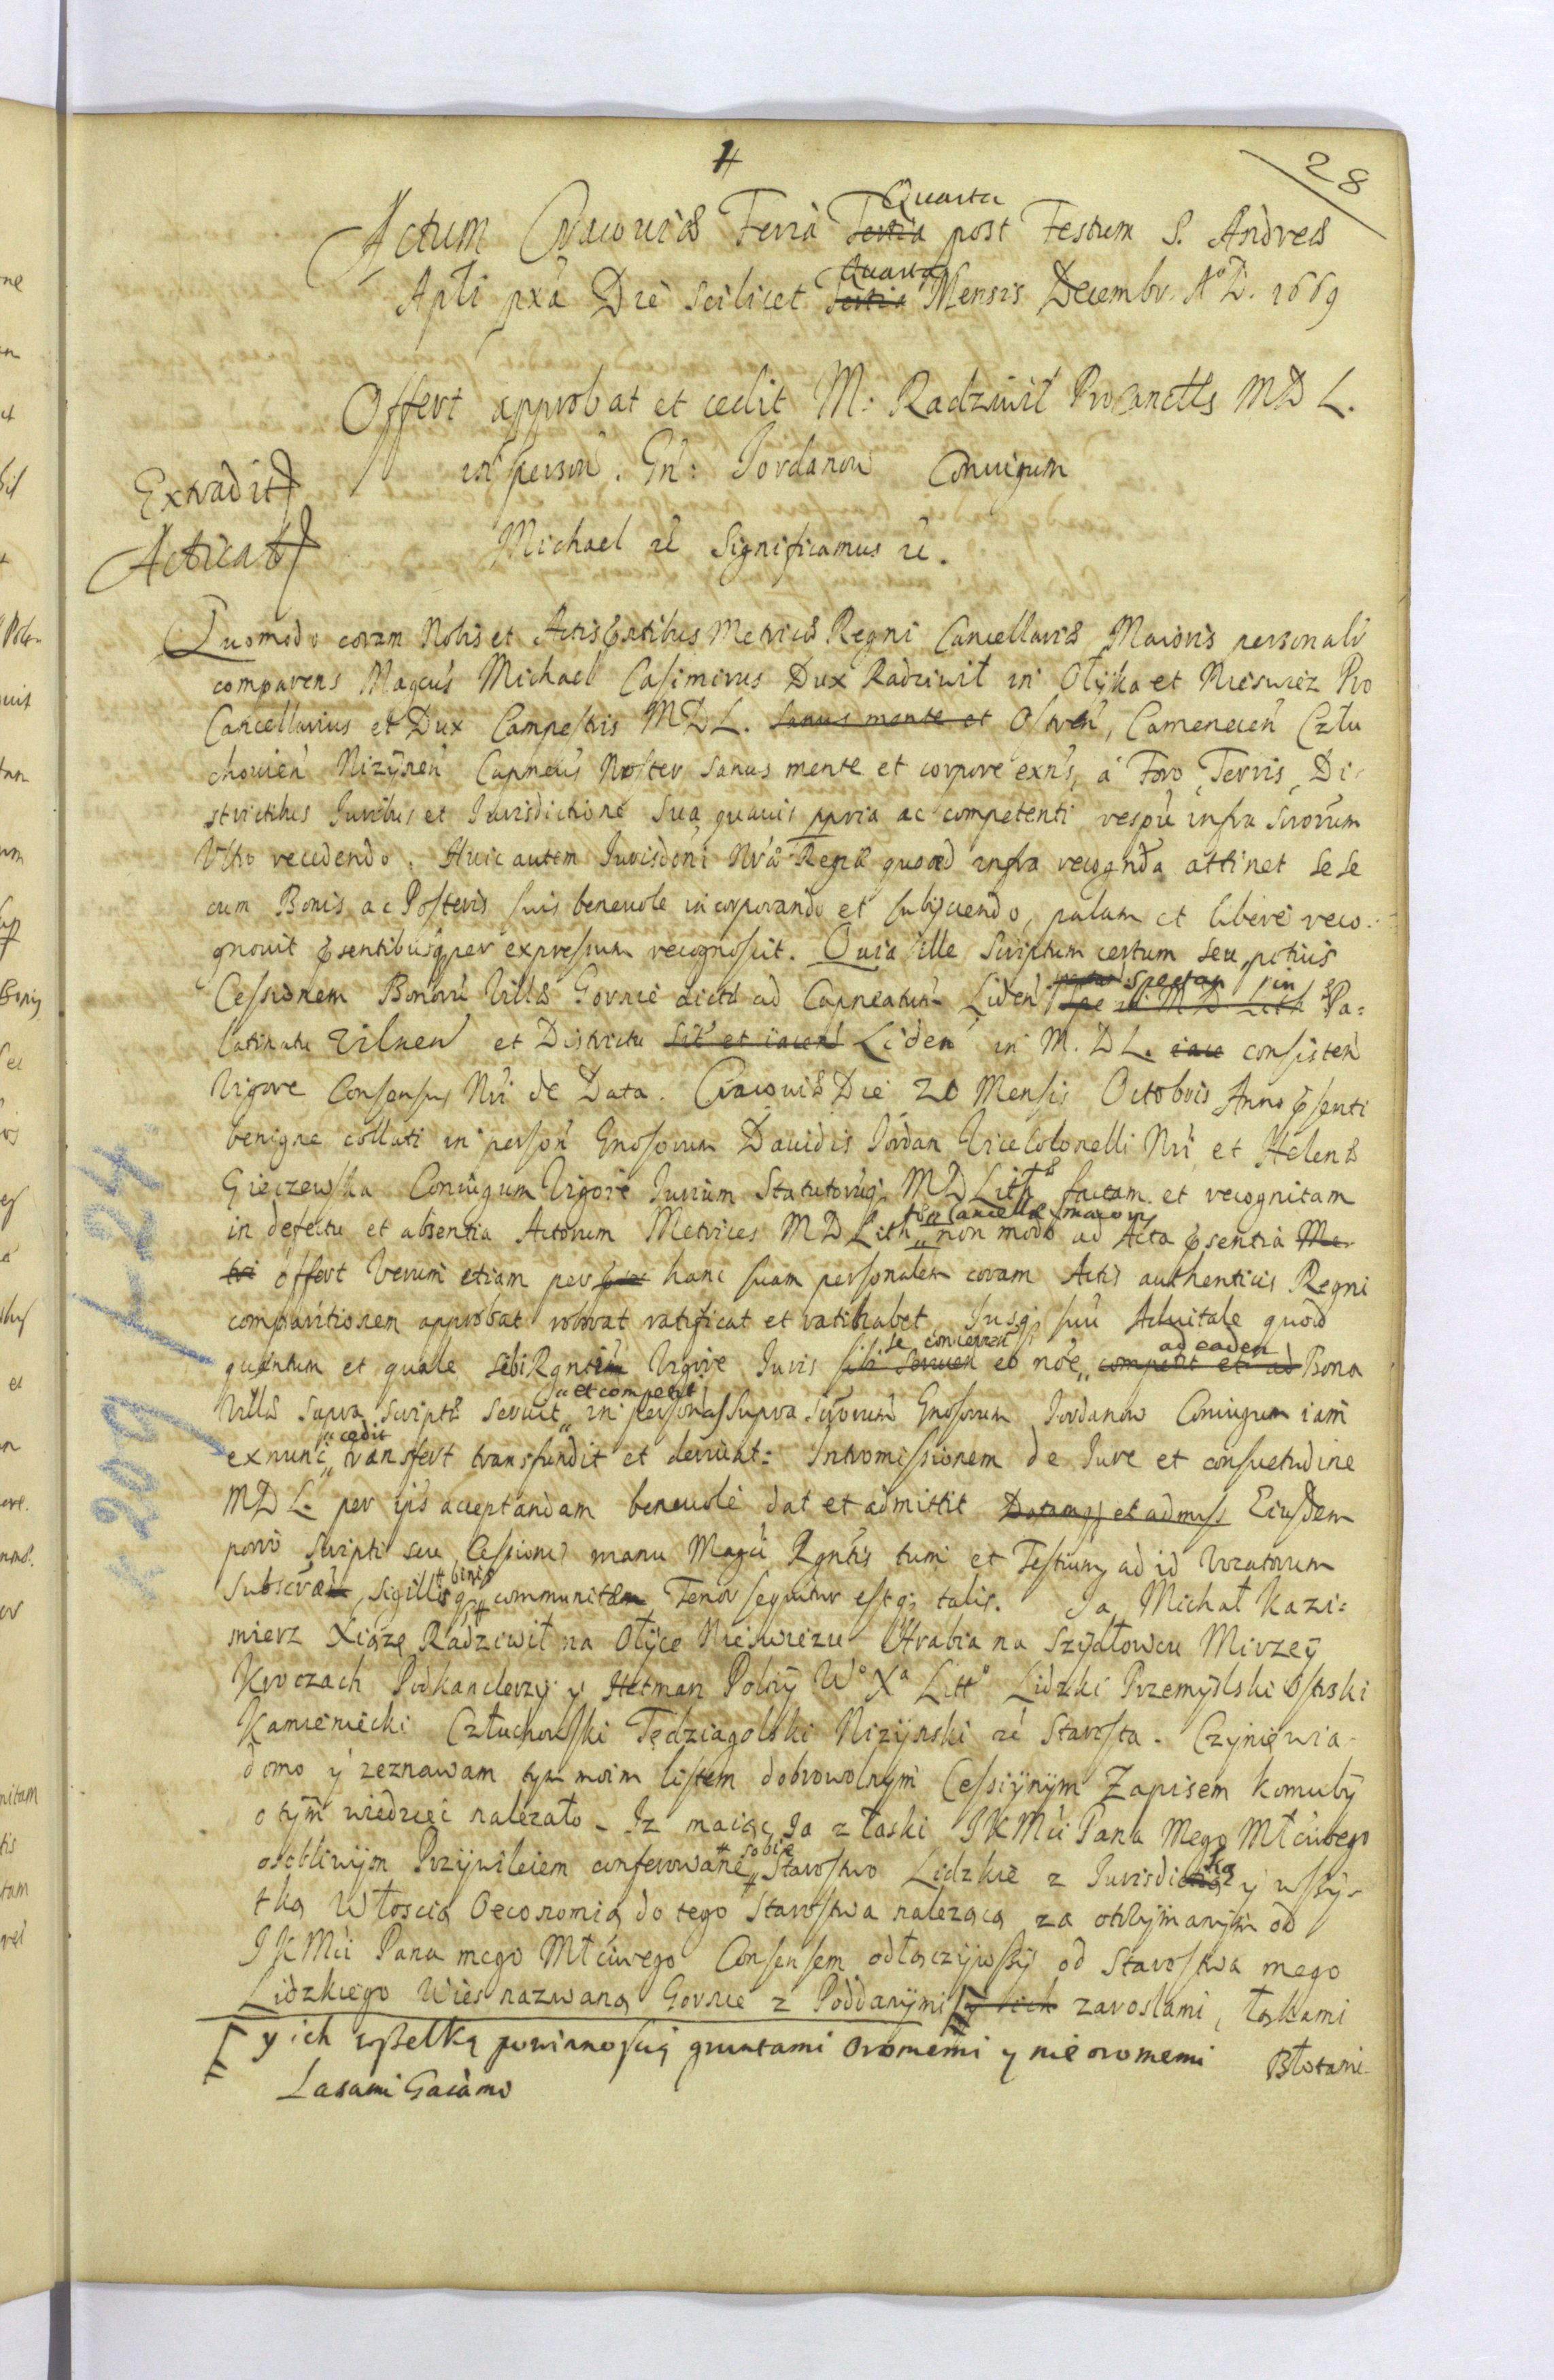 28
Actum Cracoviæ Feria Tertia Quarta post Festum S. Andreæ
Apli pxa Die scilicet Tertia Quarta Mensis Decembr. Aº D. 1669
Offert approbat et cedit M: Radziwił Procancells MDL.
in person. Gn: Jordanow Coniugum
Extradit
Acticat
Michael &c Significamus &c.
Quomodo coram Nobis et Actis pntibus Metrices Regni Cancellariæ Maioris personalr
comparens Magcus Michael Casimirus Dux Radziwił in Ołyka et Nieswiez Pro
Cancellarius et Dux Campestris MDL. Sanus mente et Ostren, Camenecen Człu
chovien Nizynen Capneus Noster sanus mente et corpore exns, à Foro, Terris, Di-
strictibus Iuribus et Iurisdictione sua quavis ppria ac competenti respu infra scrorum
Vltro recedendo. Huic autem Iurisdoni Nræ Regiæ quoad infra recognda attinet sese
cum Bonis ac Posteris suis benevole incorporando et subijciendo, palam et libere reco-
gnovit psentibusq; per expressum recognoscit. Quia ille Scriptum certum seu potius
Cessionem Bonorũ Villæ Gornie dictæ ad Capneatum Liden spectan in Pa-
latinatu Vilnen et Districtu sit et iacen Liden in M.DL. iace consisten
Vigore Consensus Nri de Data. Cracoviæ Die 20 Mensis Octobris Anno psenti
benigne collati in person Gnosorum Davidis Jordan Vicecolonelli Nri et Helenæ
Gieczewska Coniugum Vigore Iurium Statutorumq; MDLithæ factam et recognitam
in defectu et absentia Actorum Metrices MDLithæ Cancellæ maioris non modo ad Acta psentia Me-
tri offert Verum etiam per hanc suam personalem coram Actis authenticis Regni
comparitionem approbat roborat ratificat et ratihabet Iusq; suũ Advitale quod
quantum et quale sibi Rgnti Vigore Iuris sibi servien se concernen eo noe competit eti ad ad eadem Bona
Villæ supra scriptæ servit et competit in personas supra scrorum Gnosorum Jordanow Coniugum iam
exnunc cedit transfert transfundit et derivat: Intromissionem de Iure et consuetudine
MDL. per ips acceptandam benevole dat et admittit Datamq; et admiss Eiusdem
porro Scripti seu Cessionis manu Magci Rgntis tum et Testium ad id Vocatorum
subscrae, sigillisq; binis communitæ Tenor sequitur estq; talis. Ja Michał Kazi=
mierz Xiąże Radziwił na Ołyce Nieswiezu Hrabia na Szydłowcu Mirzey
Kroczach Podkanclerzy y Hetman Polny Wº Xª Littº Lidzki Przemyslski Ostrski
Kamieniecki Człuchowski Tędziagolski Nizynski &c Starosta. Czynię wia-
domo y zeznawam tym moim listem dobrowolnym Cessiynym Zapisem komuby
o tym wiedzieć nalezało. Iz maiąc Ja z łaski IKMci Pana Mego Młciwego
osobliwym Przywileiem conferowane sobie Starostwo Lidzkie z Iurisdictią y wszy-
tką Włoscią Oeconomią do tego Starostwa nalezącą za otrzymanym od
IKMci Pana mego Młciwego Consensem odłączywszy od Starostwa mego
Lidzkiego Wies nazwaną Gornie z Poddanymi y ich zaroslami, łąkami
y ich wszelką powinnoscią gruntami oromemi y nieoromemi Błotami
Lasami Gaiami
k 209 L-24